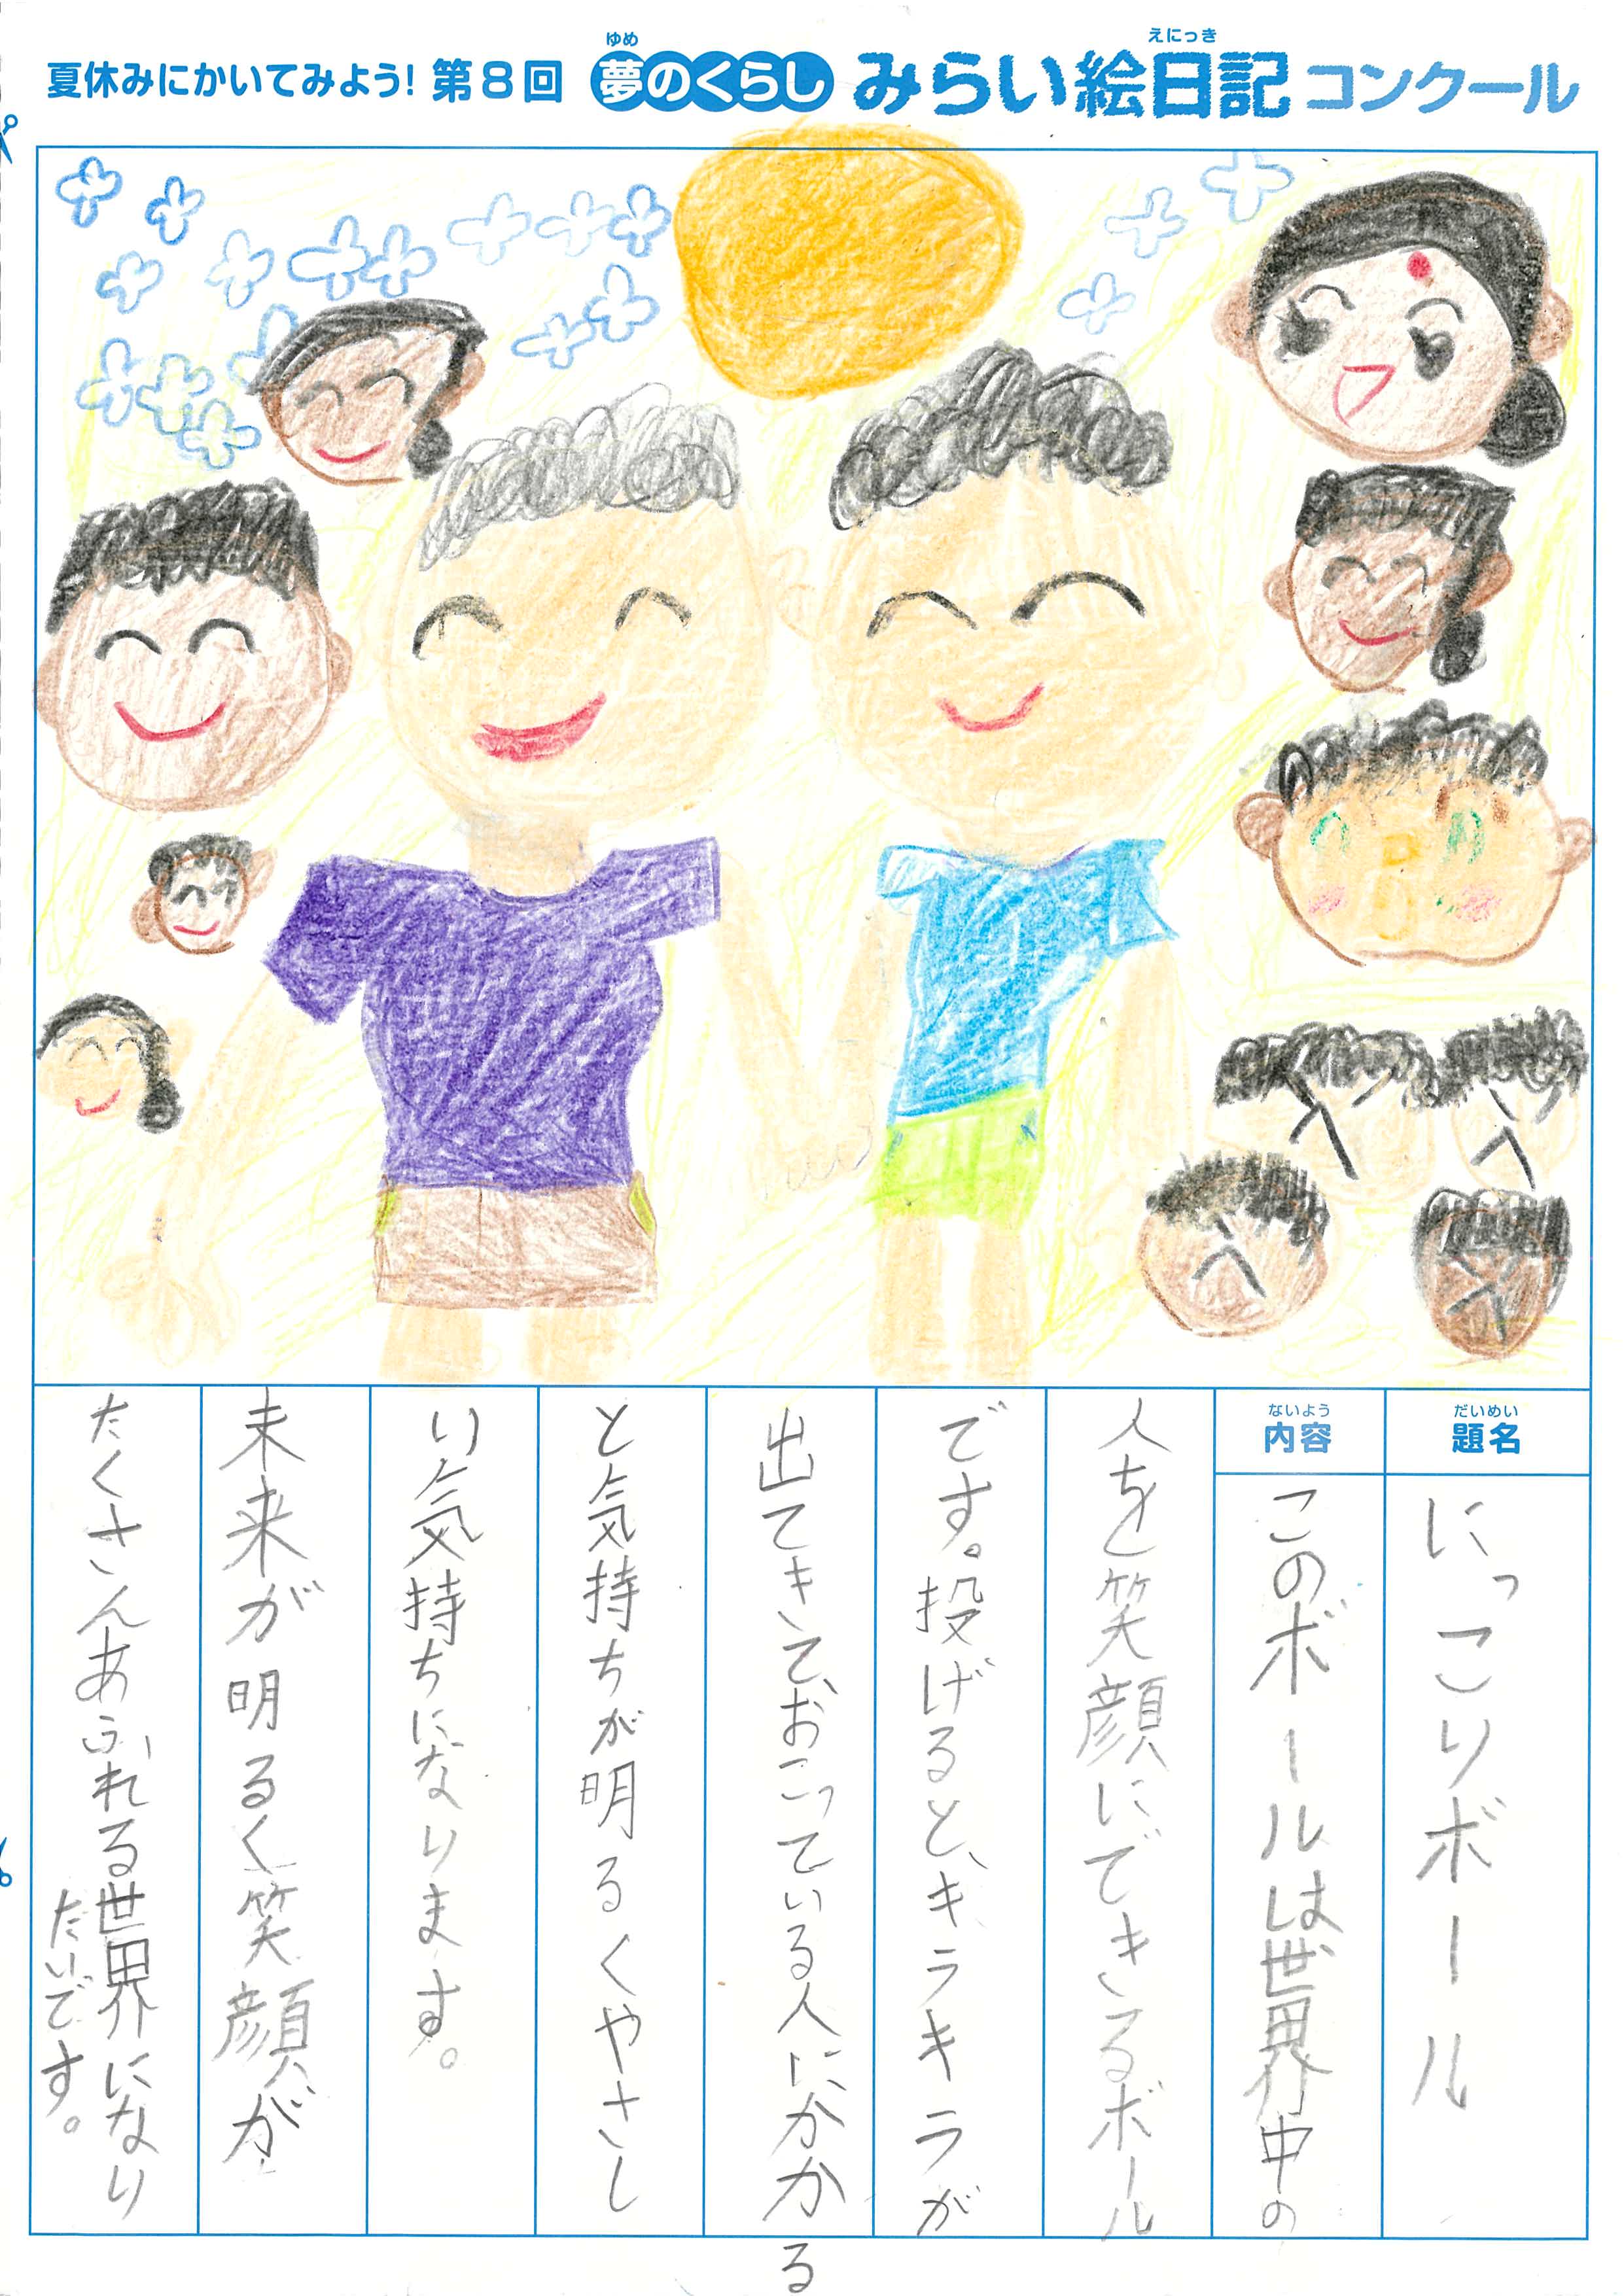 夏休みにかいてみよう！第8回 夢のくらし みらい絵日記コンクール
ゆめ
えにっき
だいめい
題名
にっこりボール
ないよう
内容
このボールは世界中の
人を笑顔にできるボール
です。投げると、キラキラが
出てきて、おこっている人にかかる
と気持ちが明るくやさし
い気持ちになります。
未来が明るく笑顔が
たくさんあふれる世界になり
たいです。